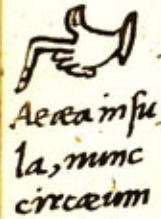 Aeæa insu
la, nunc
circæum